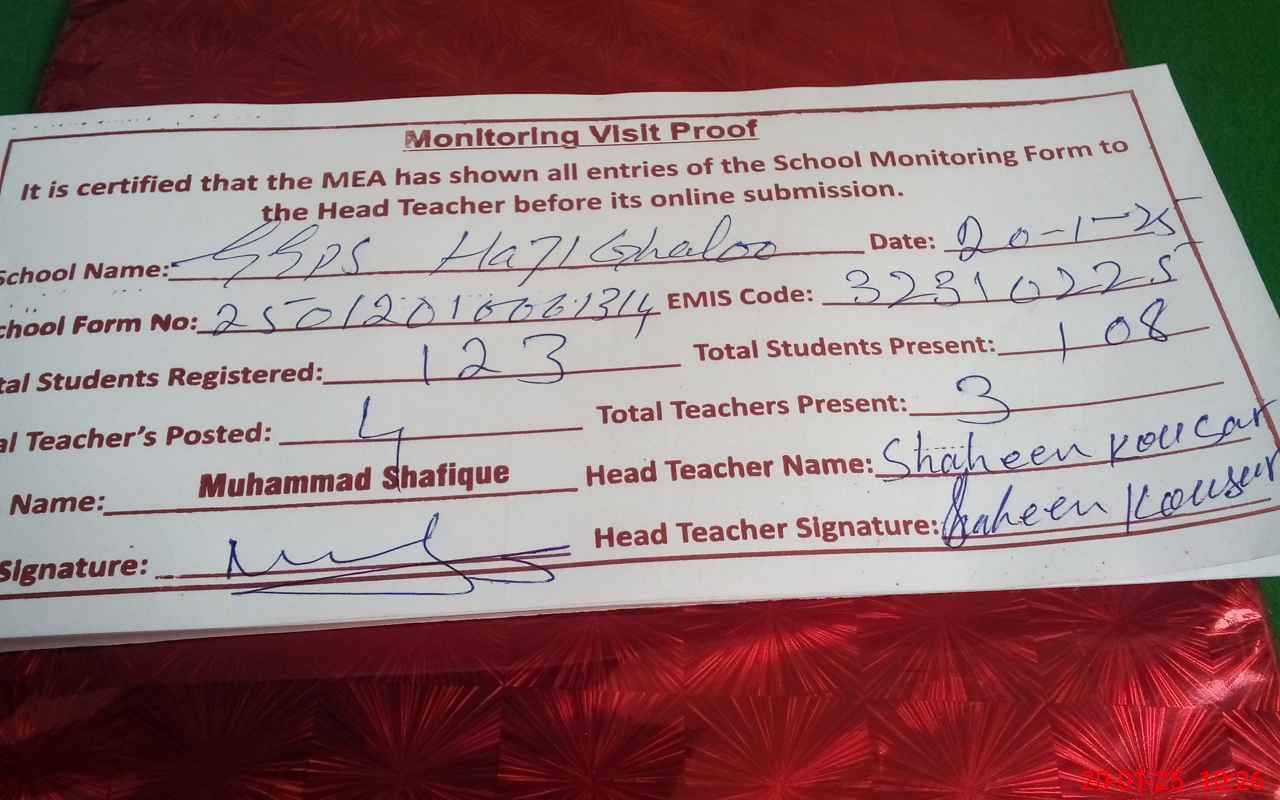 Monitoring Visit Proof
It is certified that the MEA has shown all entries of the School Monitoring Form to
the Head Teacher before its online submission.
School Name: GGPS Haji Ghaloo Date: 20-1-25
chool Form No: EMIS Code: 32310225
tal Students Registered: 123 Total Students Present: 108
al Teacher's Posted: 4 Total Teachers Present: 3
Name: Muhammad Shafique Head Teacher Name: Shaheen Kousar
Signature: Head Teacher Signature: Shaheen Kousar
20-01-25 10:26